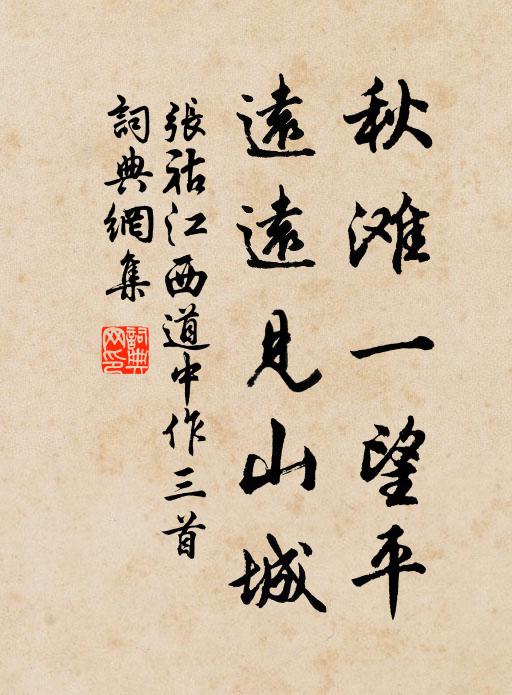 秋滩一望平
遠遠見山城
張祜江西道中作三首
詞典網集
詞典
网印